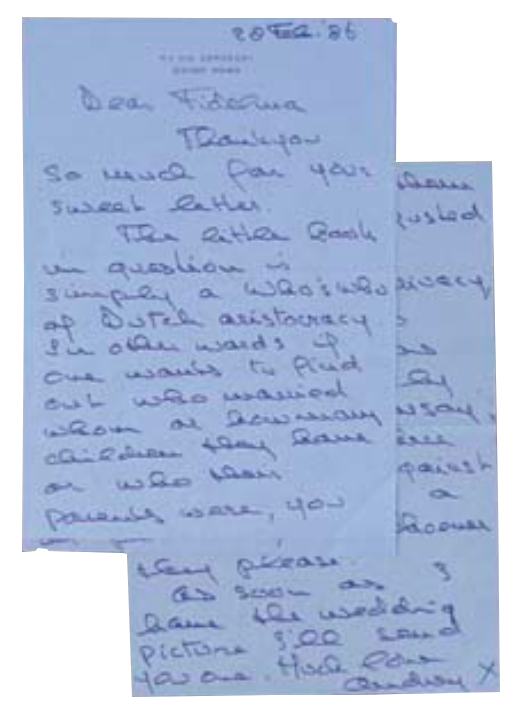 20 Feb. '86
Dear Fidelma
Thankyou
so much for your
sweet letter.
The little book
in question is
simply a who's who
of Dutch aristocracy.
In other words if
one wants to find
out who married
whom or how many
children they have
or who their
parents were, you
gusted
ivacy
as
ly
against
a
they please.
As soon as I
have the wedding
picture I'll send
you one. Much love
Audrey X